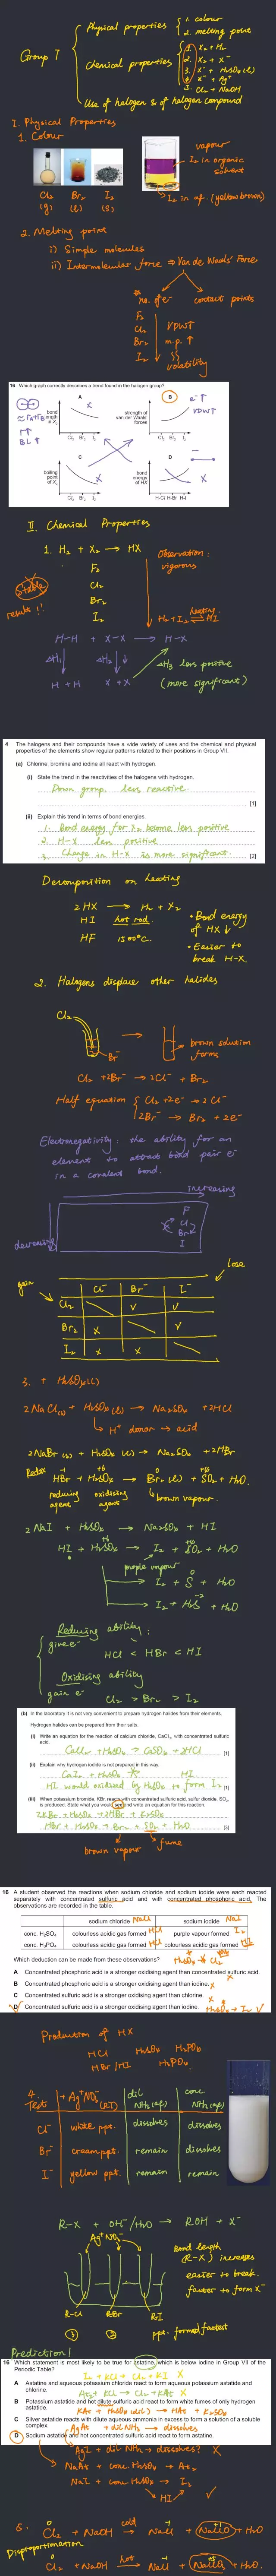 Group 7
Physical properties
1. colour
2. melting point
Chemical properties
1. X₂ + H₂
2. X₂ + X⁻
3. X⁻ + H₂SO₄(l)
4. X⁻ + Ag⁺
5. Cl₂ + NaOH
Use of halogen & of halogen compound
I. Physical Properties
1. Colour
vapour
I₂ in organic solvent
I₂ in aq. (yellow brown)
Cl₂ Br₂ I₂
(g) (l) (s)
2. Melting point
i) Simple molecules
ii) Intermolecular force ⇒ Van de Waals' Force
no. of e⁻
contact points
F₂
Cl₂
Br₂
I₂
VDW ↑
m.p. ↑
volatility
16 Which graph correctly describes a trend found in the halogen group?
A
bond length in X₂
Cl₂ Br₂ I₂
B
strength of van der Waals' forces
Cl₂ Br₂ I₂
e⁻ ↑
VDW ↑
BL ↑
C
boiling point of X₂
Cl₂ Br₂ I₂
D
bond energy of HX
H-Cl H-Br H-I
II. Chemical Properties
1. H₂ + X₂ → HX
Observation:
vigorous
F₂
Cl₂
Br₂
I₂
Stable
results!!
heating
H₂ + I₂ ⇌ HI
H–H + X–X → H–X
ΔH₁ ΔH₂ ΔH₃ less positive
H + H X + X (more significant)
4 The halogens and their compounds have a wide variety of uses and the chemical and physical properties of the elements show regular patterns related to their positions in Group VII.
(a) Chlorine, bromine and iodine all react with hydrogen.
(i) State the trend in the reactivities of the halogens with hydrogen.
Down group, less reactive.
[1]
(ii) Explain this trend in terms of bond energies.
1. Bond energy for X₂ become less positive
2. H-X less positive
3. Change in H-X is more significant.
[2]
Decomposition on heating
2HX → H₂ + X₂
HI hot rod.
HF 1500°C.
• Bond energy of HX ↓
• Easier to break H-X.
2. Halogens displace other halides
Cl₂
Br⁻
brown solution forms
Cl₂ + 2Br⁻ → 2Cl⁻ + Br₂
Half equation
Cl₂ + 2e⁻ → 2Cl⁻
2Br⁻ → Br₂ + 2e⁻
Electronegativity: the ability for an element to attract bond pair e⁻ in a covalent bond.
increasing
F
Cl
Br
I
decreasing
gain
lose
Cl⁻ Br⁻ I⁻
Cl₂ V V
Br₂ X V
I₂ X X
3. + H₂SO₄(l)
2NaCl(s) + H₂SO₄(l) → Na₂SO₄ + 2HCl
H⁺ donor → acid
2NaBr(s) + H₂SO₄(l) → Na₂SO₄ + 2HBr
Redox
HBr + H₂SO₄ → Br₂(l) + SO₂ + H₂O.
reducing agent
oxidising agent
brown vapour.
2NaI + H₂SO₄ → Na₂SO₄ + HI
HI + H₂SO₄ → I₂ + SO₂ + H₂O
purple vapour
I₂ + S + H₂O
I₂ + H₂S + H₂O
Reducing ability:
give e⁻
HCl < HBr < HI
Oxidising ability
gain e⁻
Cl₂ > Br₂ > I₂
(b) In the laboratory it is not very convenient to prepare hydrogen halides from their elements.
Hydrogen halides can be prepared from their salts.
(i) Write an equation for the reaction of calcium chloride, CaCl₂, with concentrated sulfuric acid.
CaCl₂ + H₂SO₄ → CaSO₄ + 2HCl
[1]
(ii) Explain why hydrogen iodide is not prepared in this way.
CaI₂ + H₂SO₄ → HI.
HI would oxidized by H₂SO₄ to form I₂
[1]
(iii) When potassium bromide, KBr, reacts with concentrated sulfuric acid, sulfur dioxide, SO₂, is produced. State what you would see and write an equation for this reaction.
2KBr + H₂SO₄ → 2HBr + K₂SO₄
HBr + H₂SO₄ → Br₂ + SO₂ + H₂O
[3]
brown vapour
fume
16 A student observed the reactions when sodium chloride and sodium iodide were each reacted separately with concentrated sulfuric acid and with concentrated phosphoric acid. The observations are recorded in the table.
sodium chloride NaCl sodium iodide NaI
conc. H₂SO₄ colourless acidic gas formed HCl purple vapour formed I₂
conc. H₃PO₄ colourless acidic gas formed HCl colourless acidic gas formed HI
Which deduction can be made from these observations?
A Concentrated phosphoric acid is a stronger oxidising agent than concentrated sulfuric acid.
B Concentrated phosphoric acid is a stronger oxidising agent than iodine.
C Concentrated sulfuric acid is a stronger oxidising agent than chlorine.
D Concentrated sulfuric acid is a stronger oxidising agent than iodine.
Production of HX
HCl H₂SO₄ H₃PO₄
HBr/HI H₃PO₄.
4. + Ag⁺NO₃⁻
Test
dil NH₃(aq)
conc NH₃(aq)
Cl⁻ white ppt. dissolves dissolves
Br⁻ cream ppt. remain dissolves
I⁻ yellow ppt. remain remain
R-X + OH⁻/H₂O → ROH + X⁻
Ag⁺NO₃⁻
Bond length (R-X) increases
easier to break.
faster to form X⁻
R-Cl RBr RI
③ ② ppt. formed fastest
Prediction!
16 Which statement is most likely to be true for astatine, which is below iodine in Group VII of the Periodic Table?
I₂ + KCl → Cl₂ + KI X
A Astatine and aqueous potassium chloride react to form aqueous potassium astatide and chlorine.
At₂ + KCl → Cl₂ + KAt X
B Potassium astatide and hot dilute sulfuric acid react to form white fumes of only hydrogen astatide.
KAt + H₂SO₄(dil) → HAt + K₂SO₄
C Silver astatide reacts with dilute aqueous ammonia in excess to form a solution of a soluble complex.
AgAt + dil NH₃ → dissolves
D Sodium astatide and hot concentrated sulfuric acid react to form astatine.
AgI + dil NH₃ → dissolves? X
NaAt + conc. H₂SO₄ → At₂
NaI + conc. H₂SO₄ → I₂
HI
5. Cl₂ + NaOH cold → NaCl + NaClO + H₂O
Disproportionation
Cl₂ + NaOH hot → NaCl + NaClO₃ + H₂O.